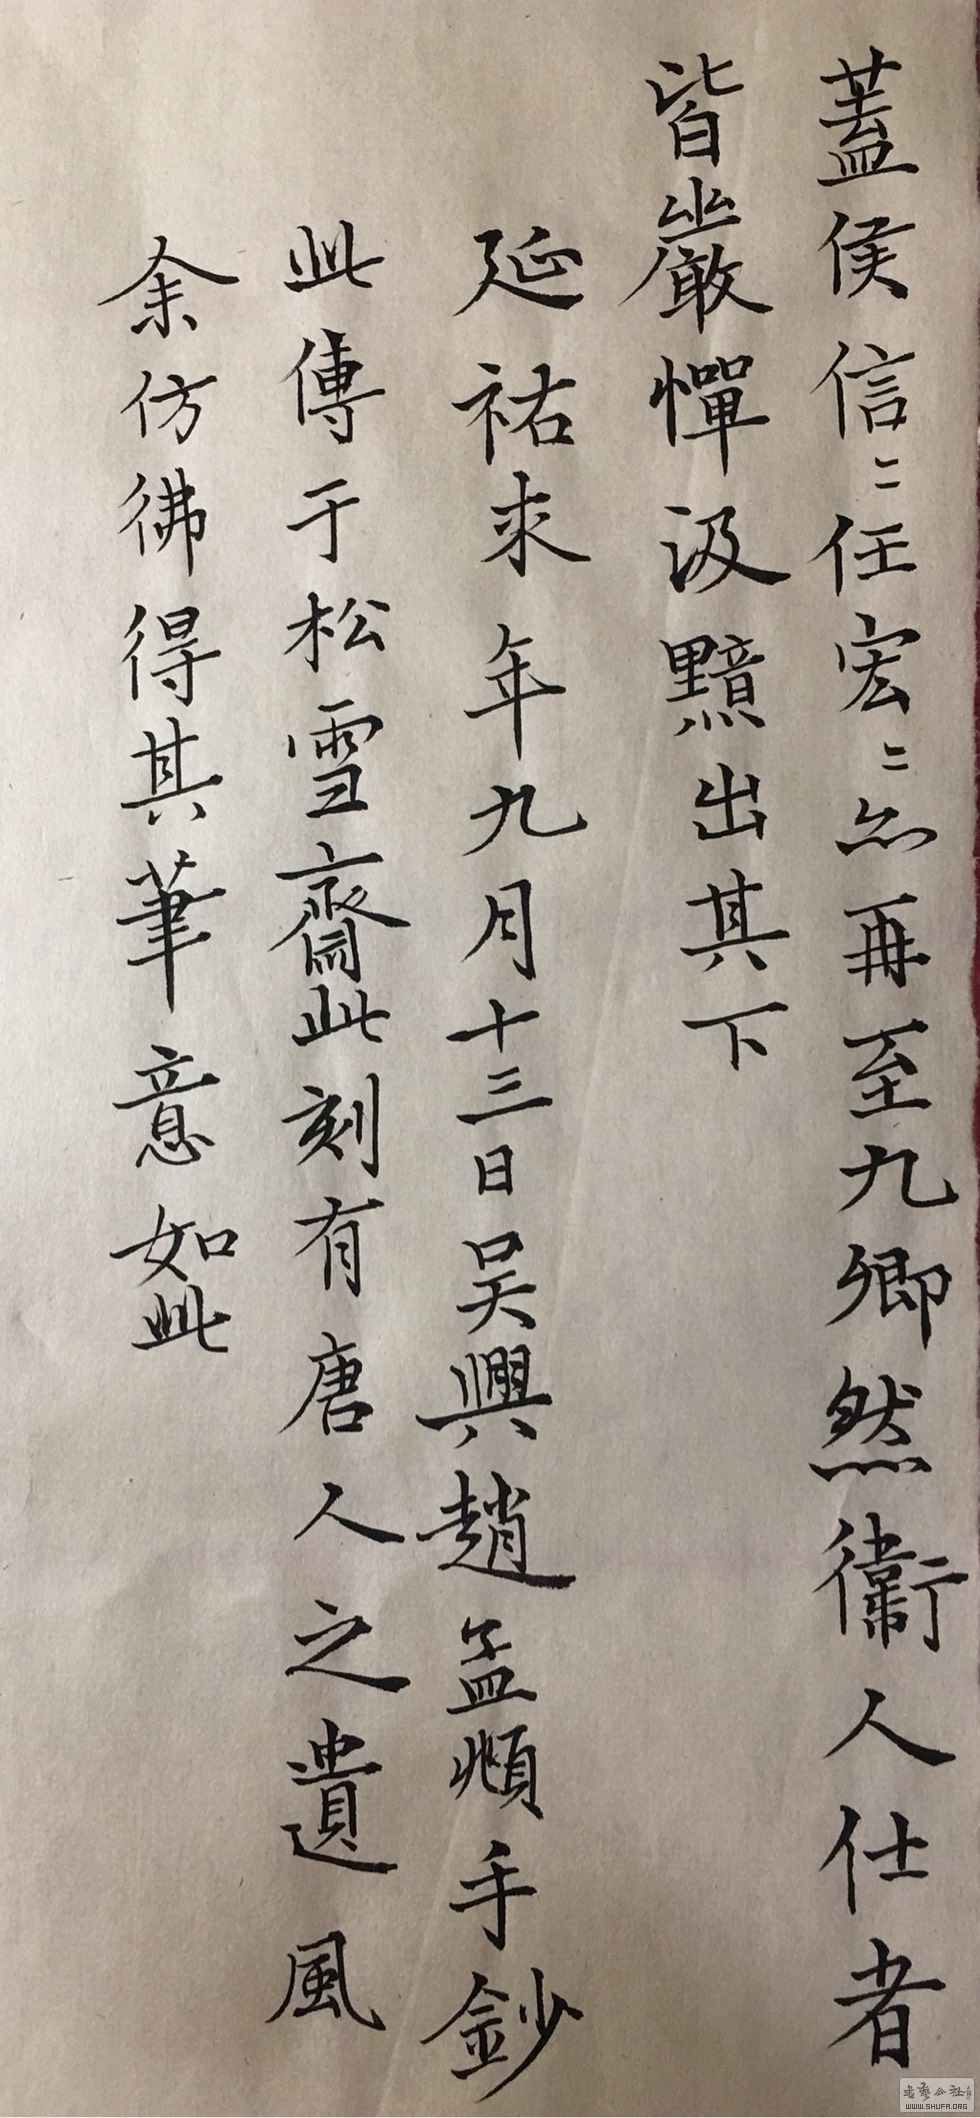 蓋侯信〻任宏〻亦再至九卿然衛人仕者
皆嚴憚汲黯出其下
延祐來年九月十三日吴興趙孟頫手鈔
此傳于松雪齋此刻有唐人之遺風
余仿彿得其筆意如此
書藝公社
WWW.SHUFA.ORG